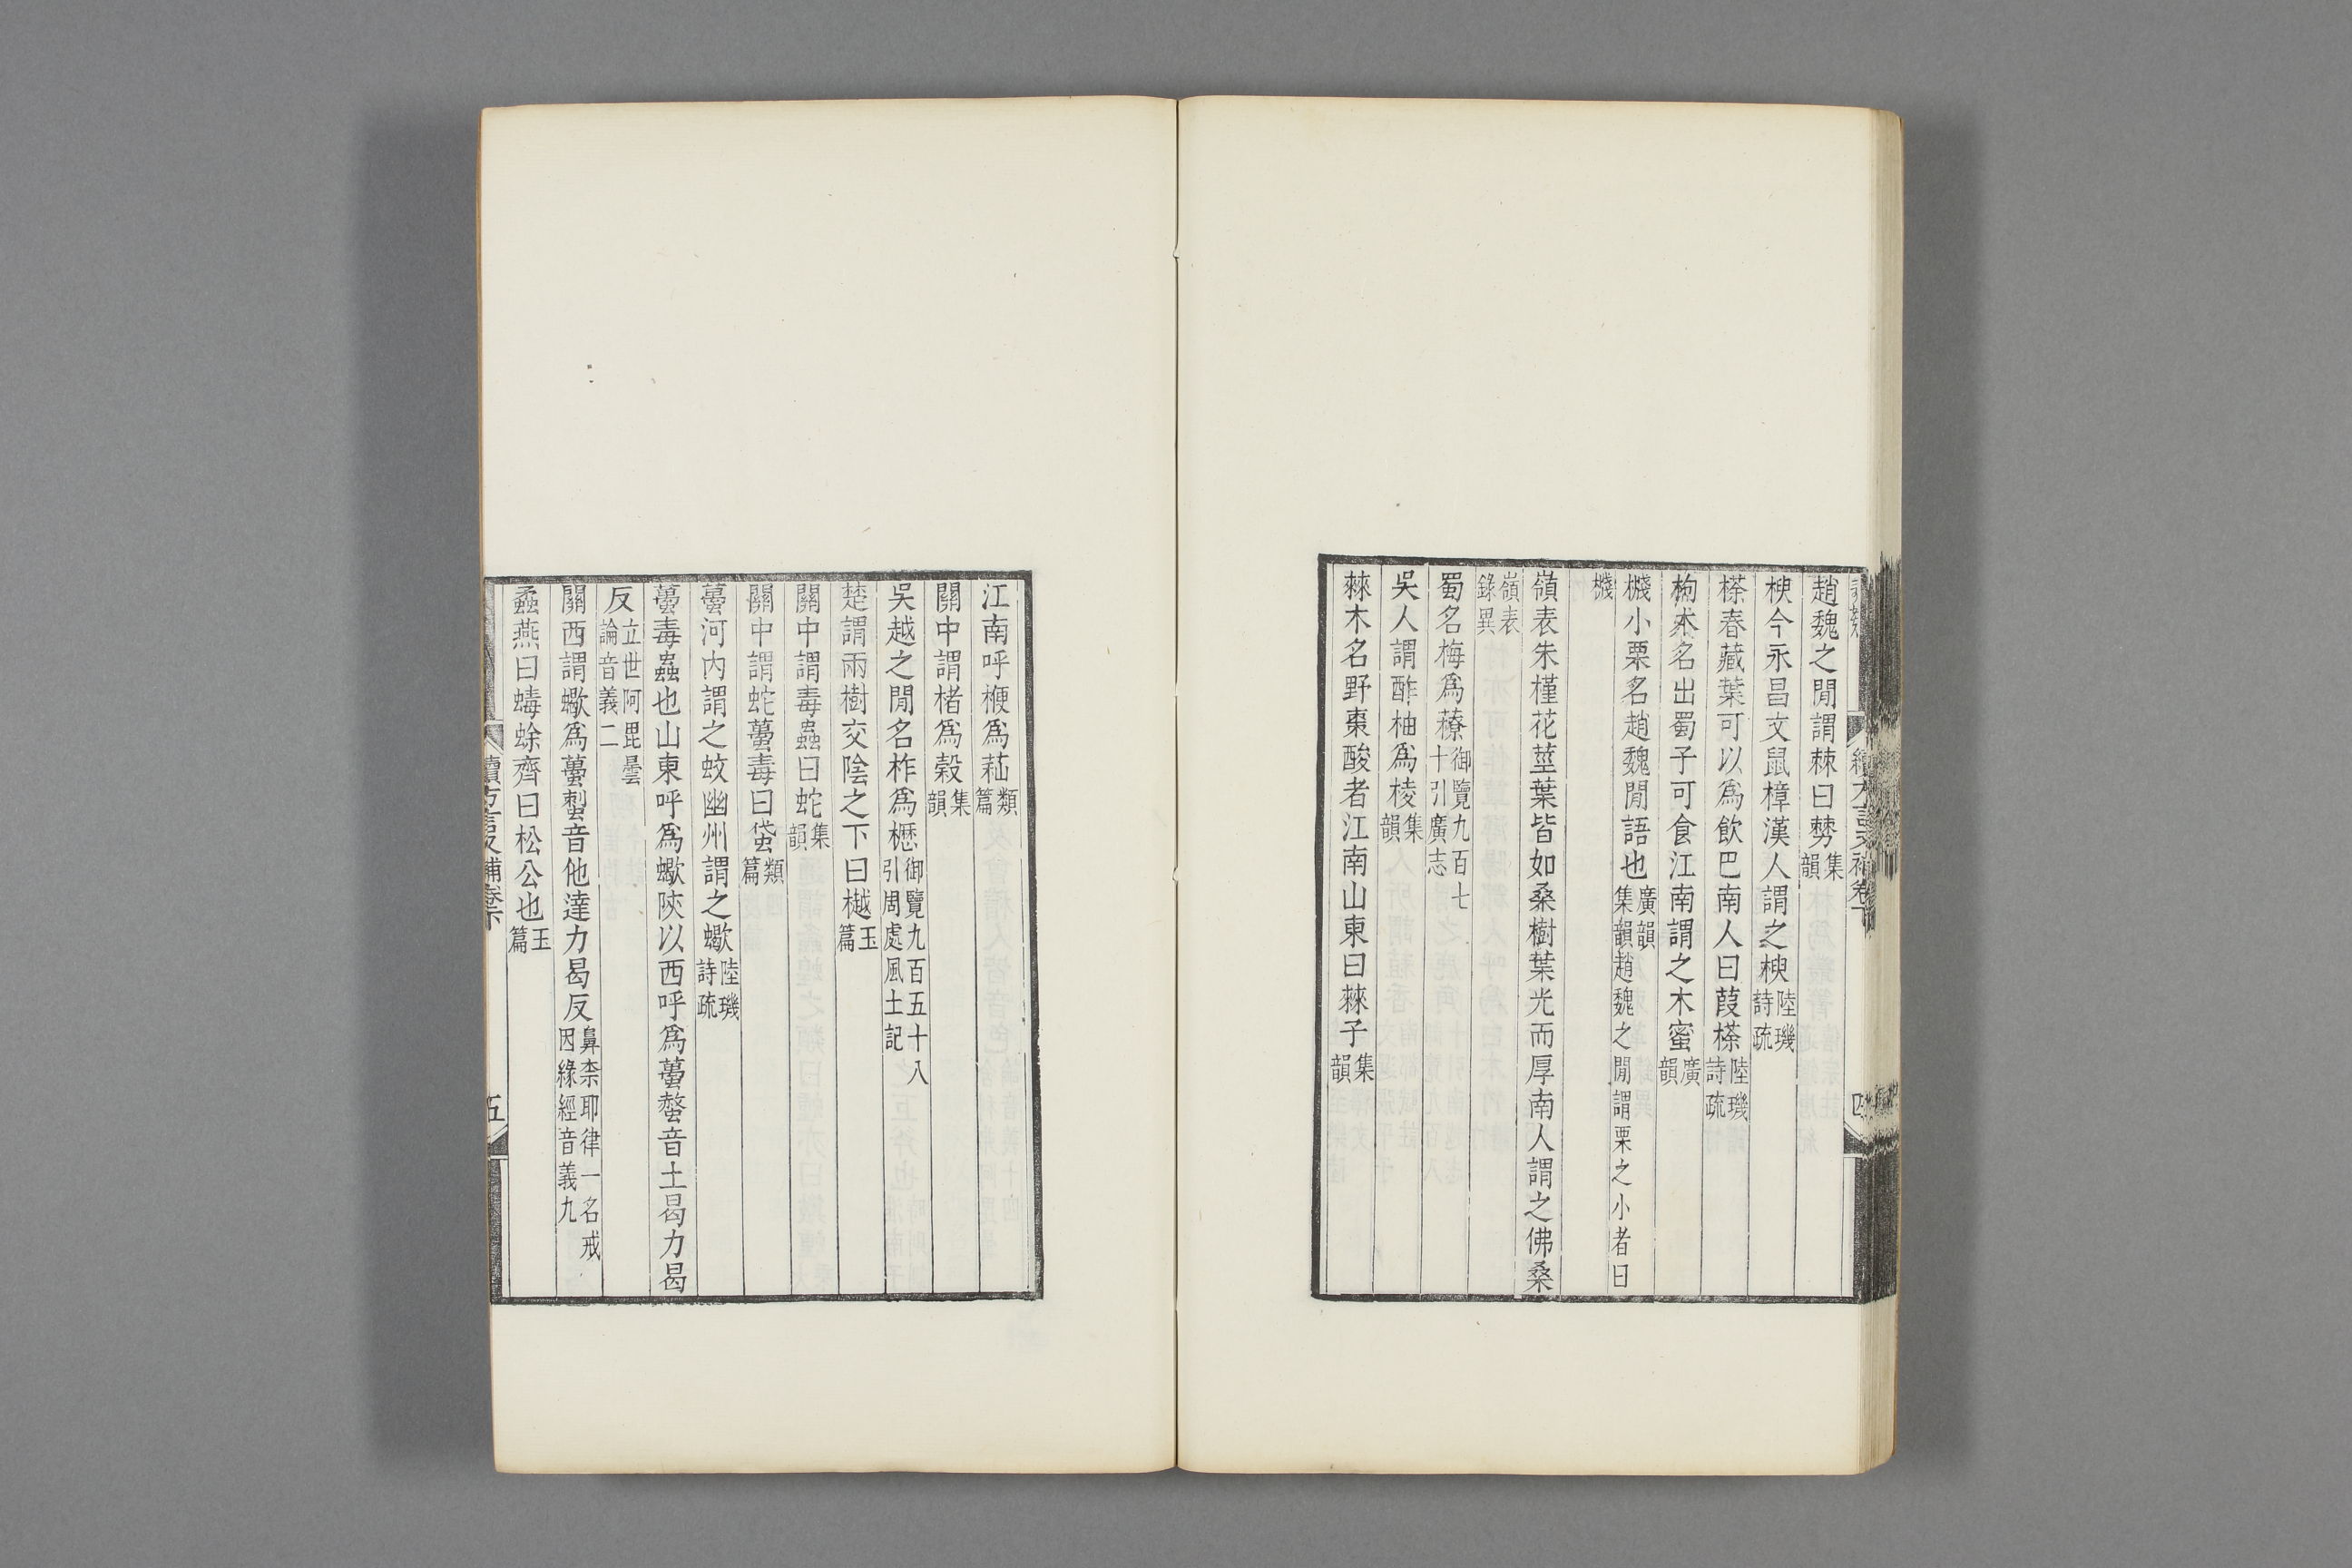 趙魏之閒謂棘曰㯡集韻
楰今永昌文鼠樟漢人謂之楰陸璣詩疏
㯂春藏葉可以爲飲巴南人曰葭㯂陸璣詩疏
枸木名出蜀子可食江南謂之木蜜廣韻
㰄小栗名趙魏閒語也廣韻集韻趙魏之閒謂栗之小者曰
㰄
嶺表朱槿花莖葉皆如桑樹葉光而厚南人謂之佛桑
嶺表錄異
蜀名梅爲䕩御覽九百七十引廣志
吳人謂酢柚爲棱集韻
棘木名野棗酸者江南山東曰棘子集韻
續方言又補卷下
四
江南呼楩爲䓊類篇
關中謂楮爲榖集韻
吳越之閒名柞爲櫪御覽九百五十八引周處風土記
楚謂兩樹交陰之下曰樾玉篇
關中謂毒蟲曰蛇集韻
關中謂蛇蠆毒曰蛍類篇
蠆河內謂之蚊幽州謂之蠍陸璣詩疏
蠆毒蟲也山東呼爲蠍陝以西呼爲蠆螫音土曷力曷
反立世阿毘曇論音義二
關西謂蠍爲蠆蜇音他達力曷反鼻柰耶律一名戒因緣經音義九
蟊燕曰蝳蜍齊曰松公也玉篇
續方言又補卷下
五